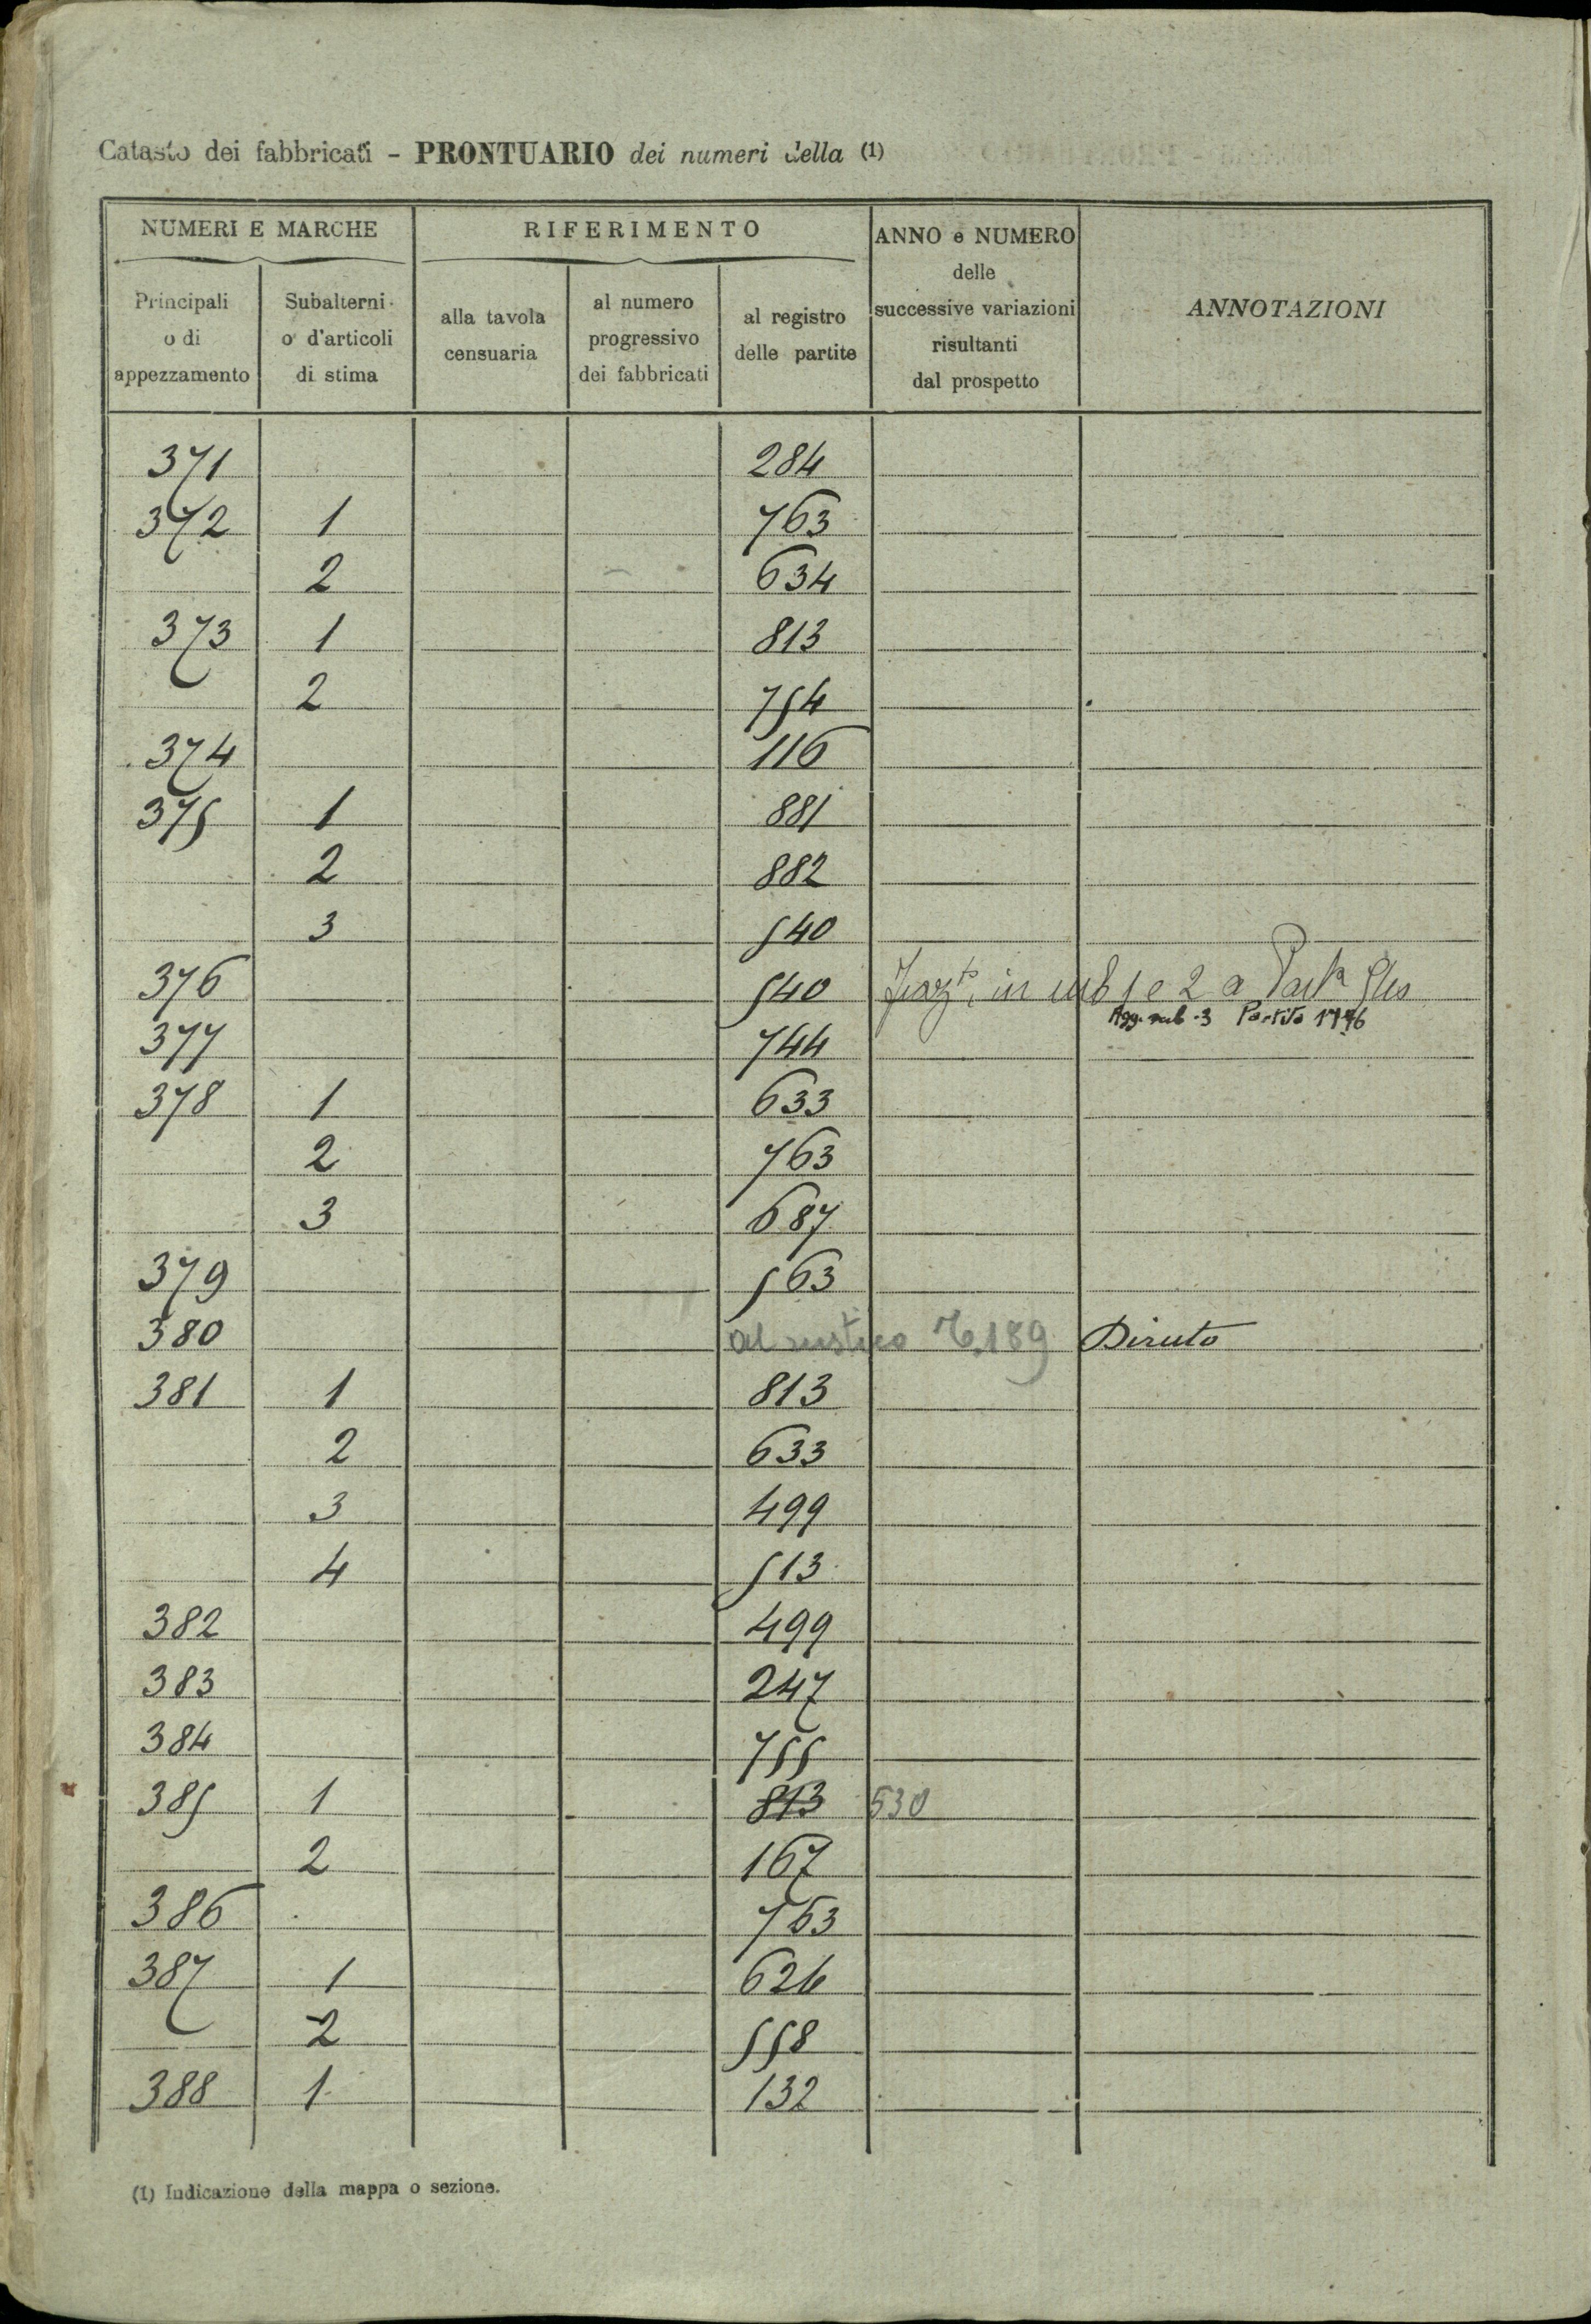 Catasto dei fabbricati - PRONTUARIO dei numeri della (1)
NUMERI E MARCHE
RIFERIMENTO
ANNO e NUMERO
delle
successive variazioni
risultanti
dal prospetto
ANNOTAZIONI
Principali
o di
appezzamento
Subalterni
o d'articoli
di stima
alla tavola
censuaria
al numero
progressivo
dei fabbricati
al registro
delle partite
371 284
372 1 763
2 634
373 1 813
2 754
374 116
375 1 881
2 882
3 540
376 540 in sub 1 e 2 a
Agg. sub. 3 Partita
377 744
378 1 633
2 763
3 687
379 563
380 al rustico 189 Diruto
381 1 813
2 633
3 499
4 513
382 499
383 247
384 755
385 1 813 530
2 167
386 763
387 1 626
2 558
388 1 132
(1) Indicazione della mappa o sezione.